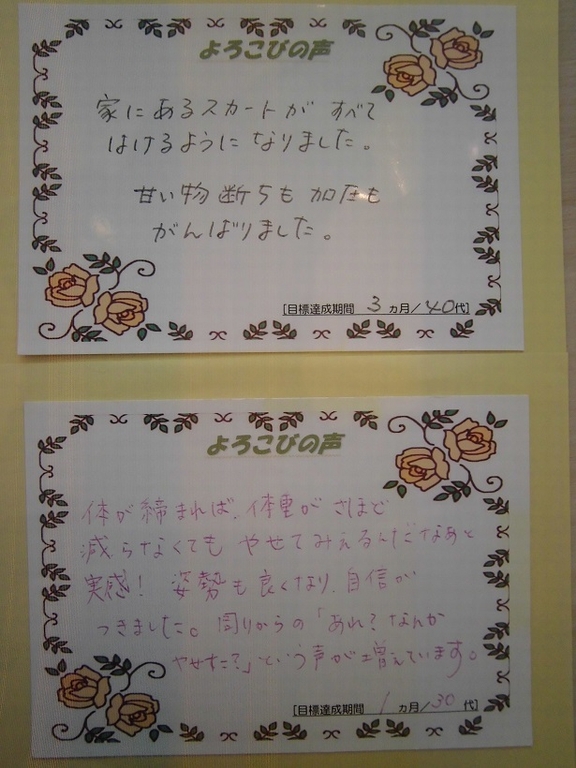 よろこびの声
家にあるスカートが すべて
はけるようになりました。
甘い物断ちも 加圧も
がんばりました。
[目標達成期間 3 カ月/40代]
よろこびの声
体が締まれば、体重がさほど
減らなくても やせてみえるんだなあと
実感! 姿勢も良くなり、自信が
つきました。周りからの「あれ?なんか
やせた?」という声が増えています。
[目標達成期間 1 カ月/30 代]